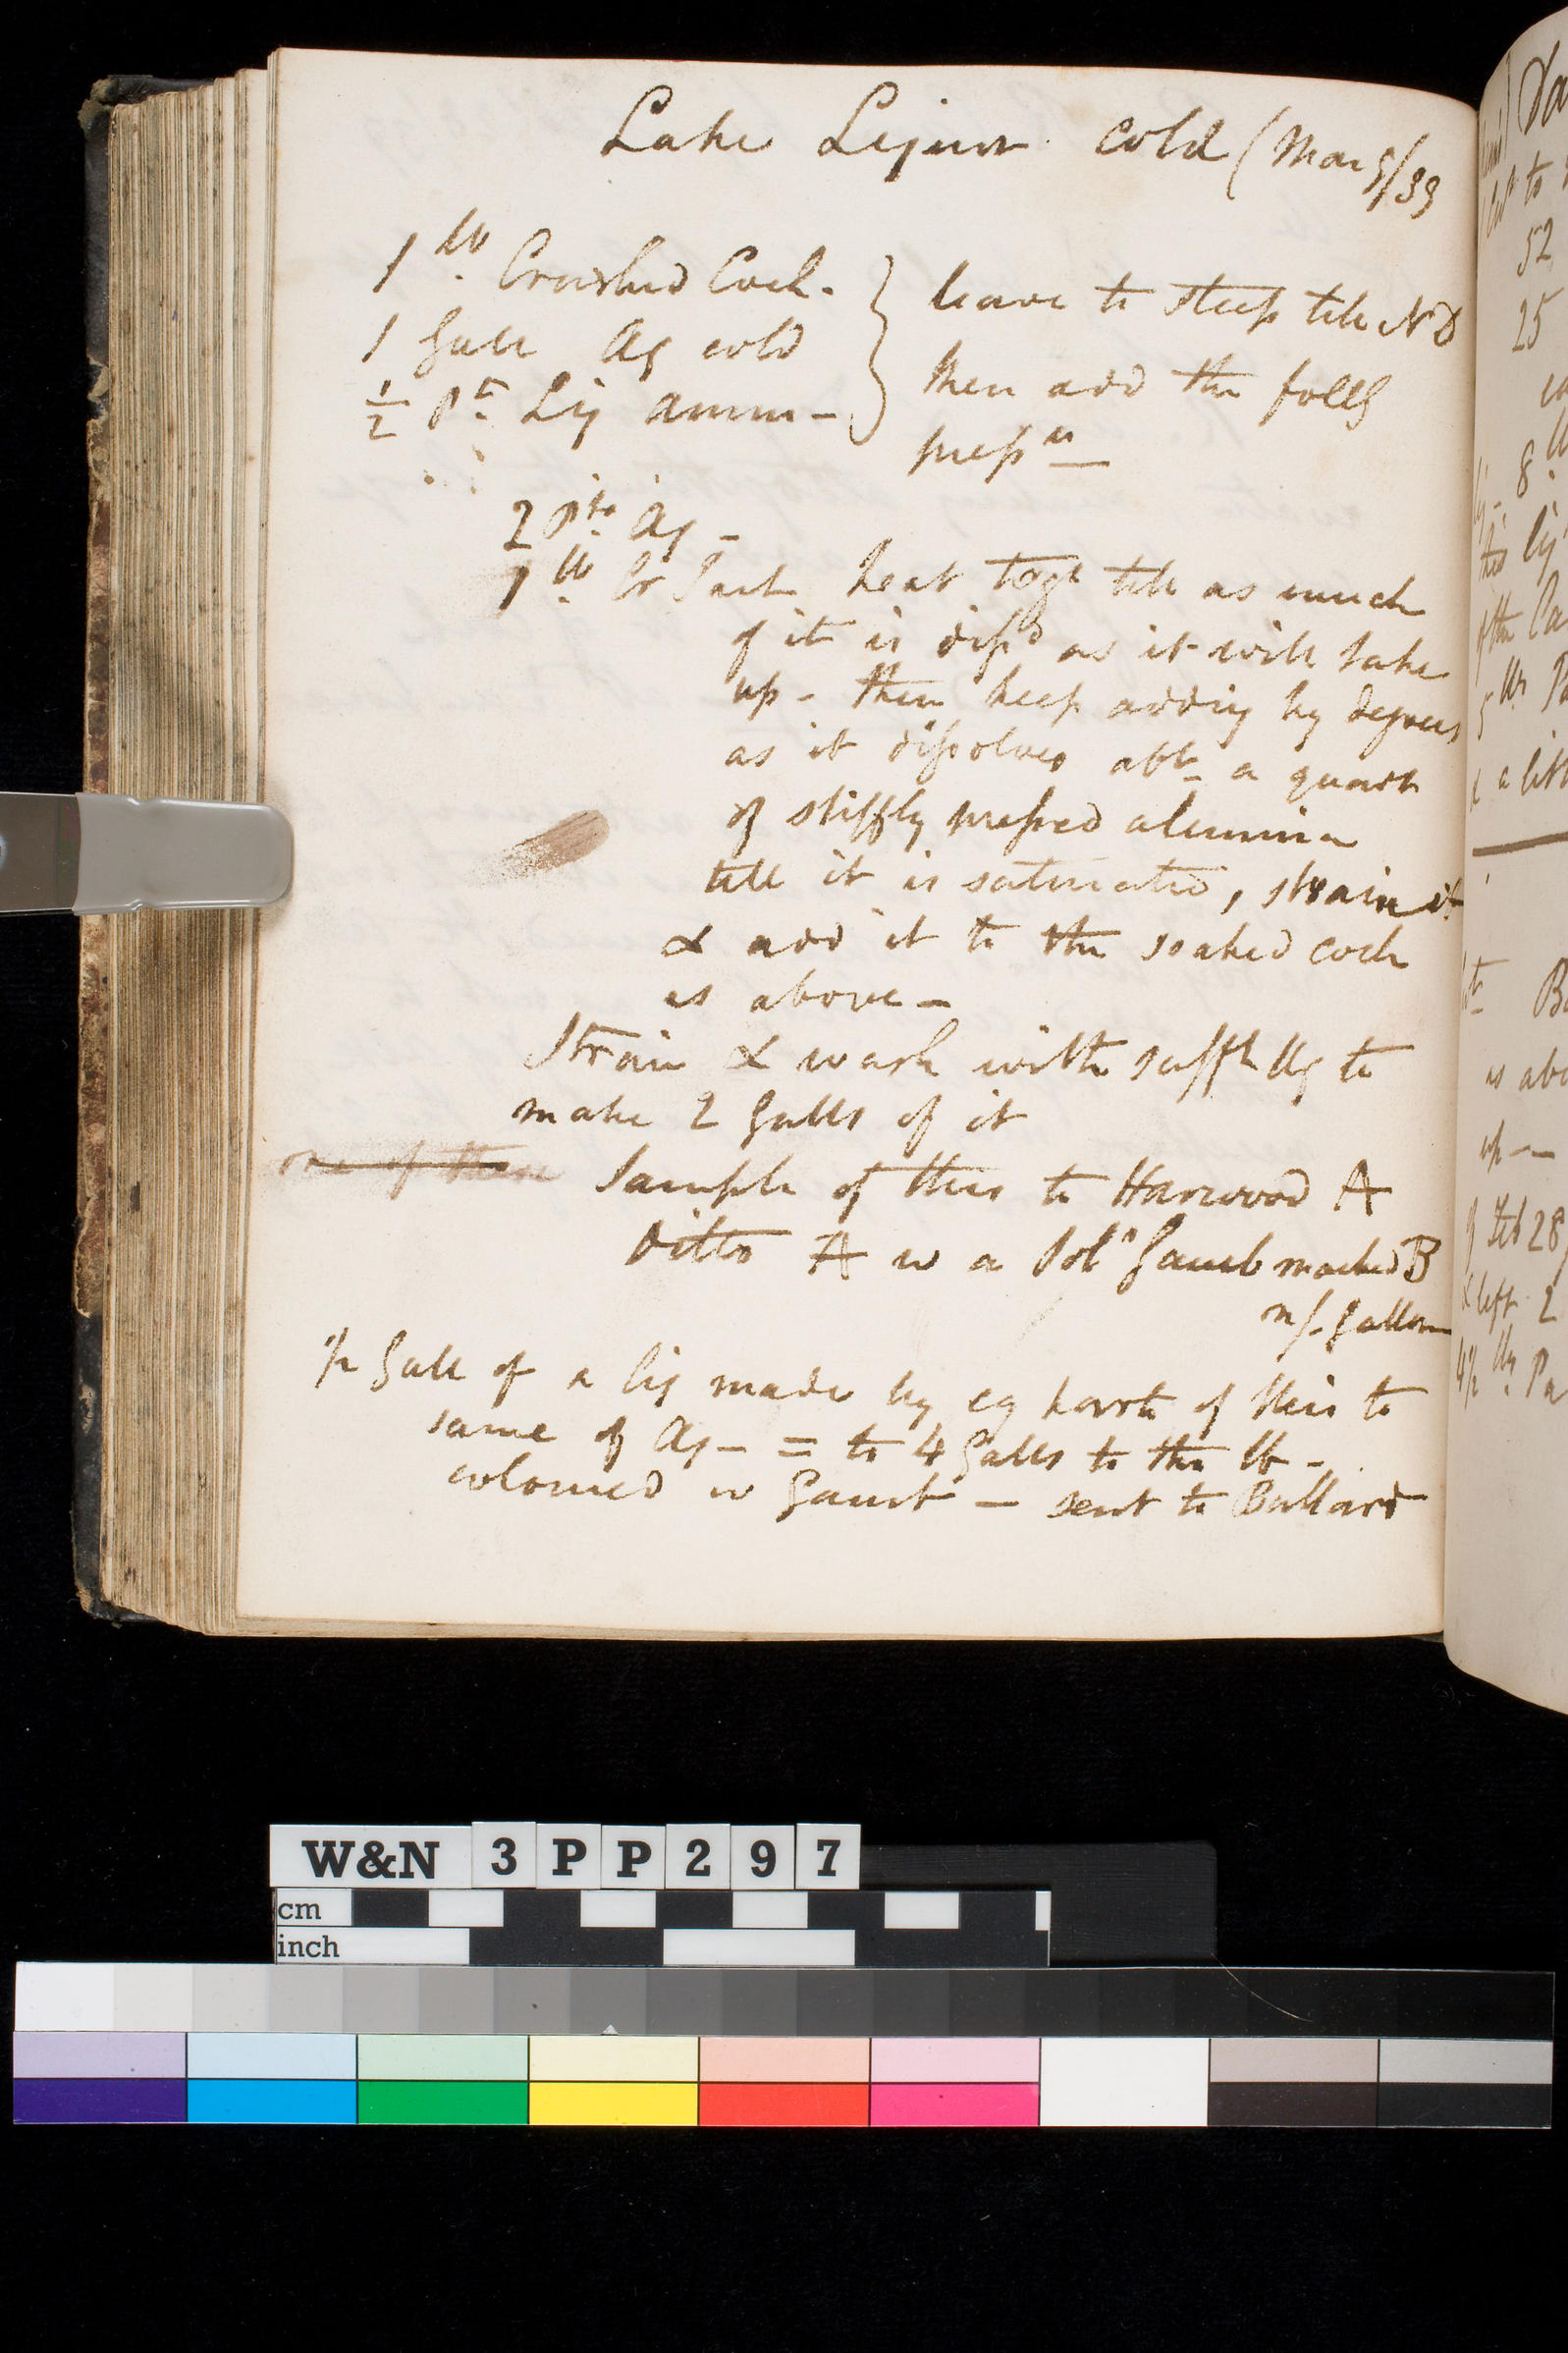 Lake Liquor cold (Mar 5/39
1 lb Crushed Coch.
1 Gall Aq cold
1/2 Pt Liq amm -
leave to steep till ND
then add the follg
prepn
2 Pts Aq -
1 lb Cr Tart heat togr till as much
of it is dissd as it will take
up - then keep adding by degrees
as it dissolves abt a quart
of stiffly pressed alumina
till it is saturated, strain it
& add it to the soaked coch
as above -
Strain & wash with sufft Aq to
make 2 Galls of it
one of these Sample of this to Harwood A
ditto A w a Soln Gamb marked B
Gallon
1/2 Gall of a liq made by eq parts of this to
same of Aq - = to 4 Galls to the lb -
coloured w Gamb - sent to Ballard
52
25
8 lb
liq
a litt
B
as abo
up -
Feb 28
left 2
W&N 3PP297
cm
inch